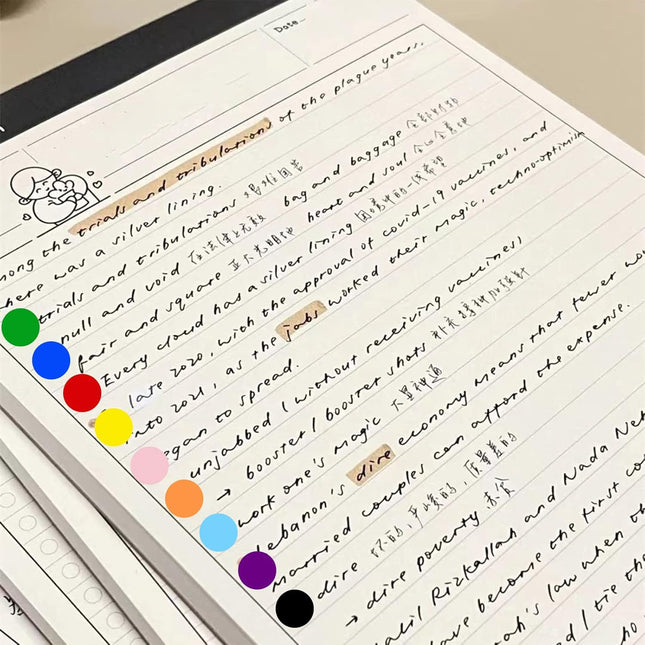 Date
mong the trials and tribulations of the plague years,
here was a silver lining.
trials and tribulations 艰难困苦 bag and baggage 全部财物
null and void 在法律上无效 heart and soul 全心全意地
fair and square 正大光明地
Every cloud has a silver lining 困境中的一线希望
late 2020, with the approval of covid-19 vaccines, and
into 2021, as the jabs worked their magic, techno-optimism
egan to spread.
unjabbed (without receiving vaccines)
→ booster / booster shots 补充接种加强针
work one's magic 大显神通
ebanon's dire economy means that fewer
married couples can afford the expense.
dire 坏的,严峻的,质量差的
→ dire poverty 赤贫
Rizkallah and Nada
ave become the first
law when
I tie the